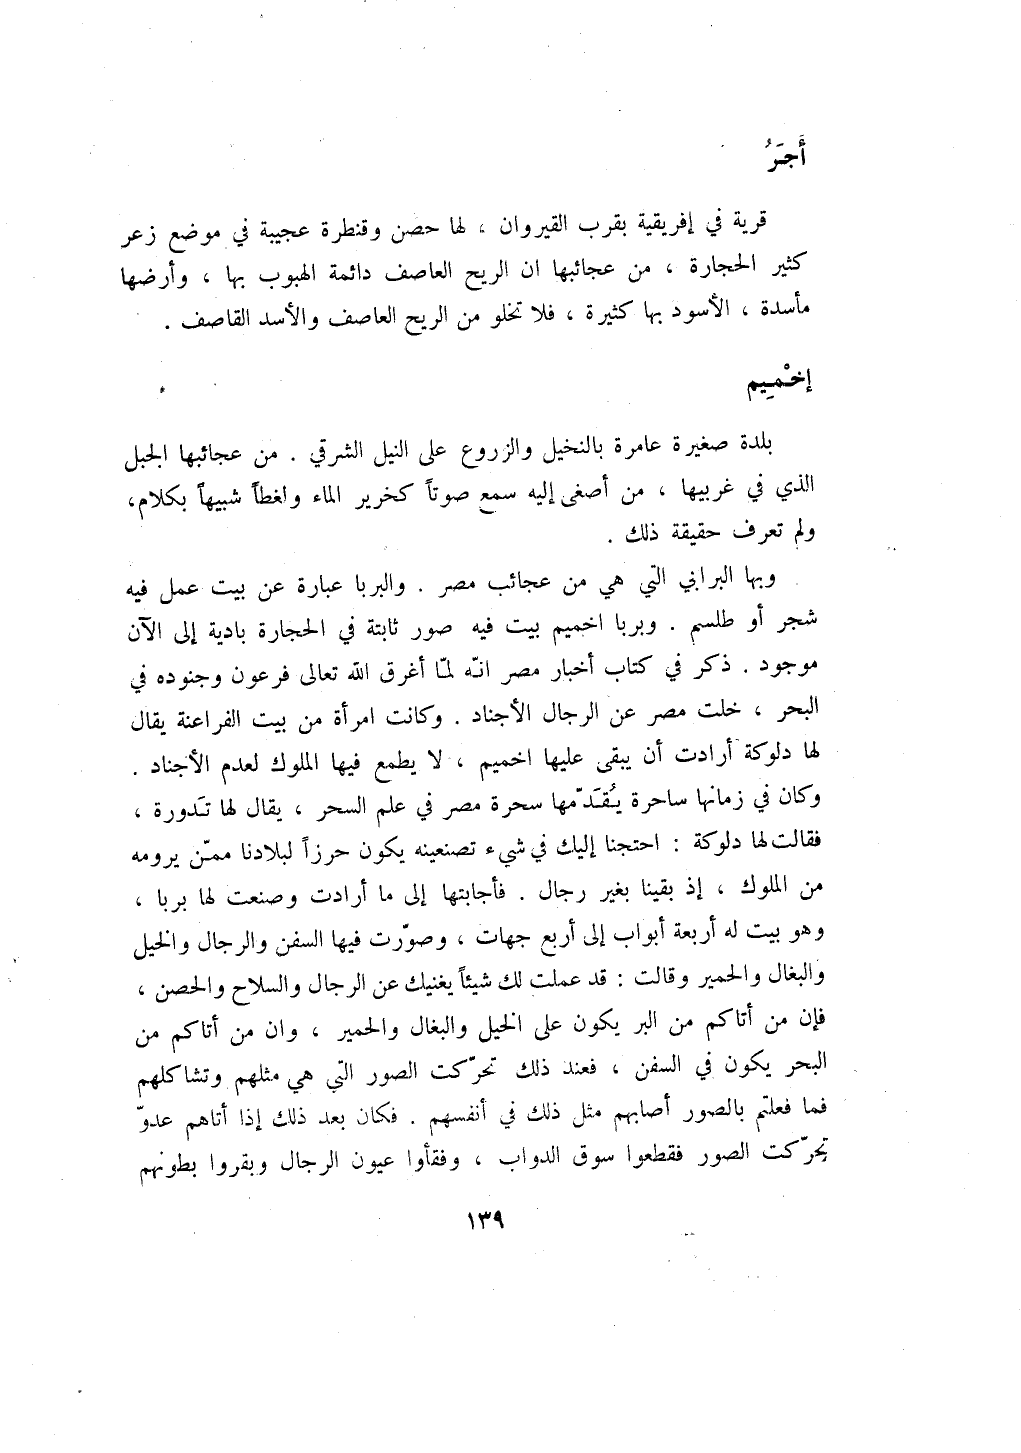 أَجَرُ
قرية في إفريقية بقرب القيروان ، لها حصن وقنطرة عجيبة في موضع زعر
كثير الحجارة ، من عجائبها ان الريح العاصف دائمة الهبوب بها ، وأرضها
مأسدة ، الأسود بها كثيرة ، فلا تخلو من الريح العاصف والأسد القاصف .
إخْمِيم
بلدة صغيرة عامرة بالنخيل والزروع على النيل الشرقي . من عجائبها الجبل
الذي في غربيها ، من أصغى إليه سمع صوتاً كخرير الماء ولغطاً شبيهاً بكلام،
ولم تعرف حقيقة ذلك .
وبها البراني التي هي من عجائب مصر . والبربا عبارة عن بيت عمل فيه
شجر أو طلسم . وبربا اخميم بيت فيه صور ثابتة في الحجارة بادية إلى الآن
موجود . ذكر في كتاب أخبار مصر انّه لمّا أغرق الله تعالى فرعون وجنوده في
البحر ، خلت مصر عن الرجال الأجناد . وكانت امرأة من بيت الفراعنة يقال
لها دلوكة أرادت أن يبقى عليها اخميم ، لا يطمع فيها الملوك لعدم الأجناد .
وكان في زمانها ساحرة يُقَدّمها سحرة مصر في علم السحر ، يقال لها تَدورة ،
فقالت لها دلوكة : احتجنا إليك في شيء تصنعينه يكون حرزاً لبلادنا ممّن يرومه
من الملوك ، إذ بقينا بغير رجال . فأجابتها إلى ما أرادت وصنعت لها بربا ،
وهو بيت له أربعة أبواب إلى أربع جهات ، وصوّرت فيها السفن والرجال والخيل
والبغال والحمير وقالت : قد عملت لك شيئاً يغنيك عن الرجال والسلاح والحصن ،
فإن من أتاكم من البر يكون على الخيل والبغال والحمير ، وان من أتاكم من
البحر يكون في السفن ، فعند ذلك تحرّكت الصور التي هي مثلهم وتشاكلهم
فما فعلتم بالصور أصابهم مثل ذلك في أنفسهم . فكان بعد ذلك إذا أتاهم عدوّ
تحرّكت الصور فقطعوا سوق الدواب ، وفقأوا عيون الرجال وبقروا بطونهم
١٣٩